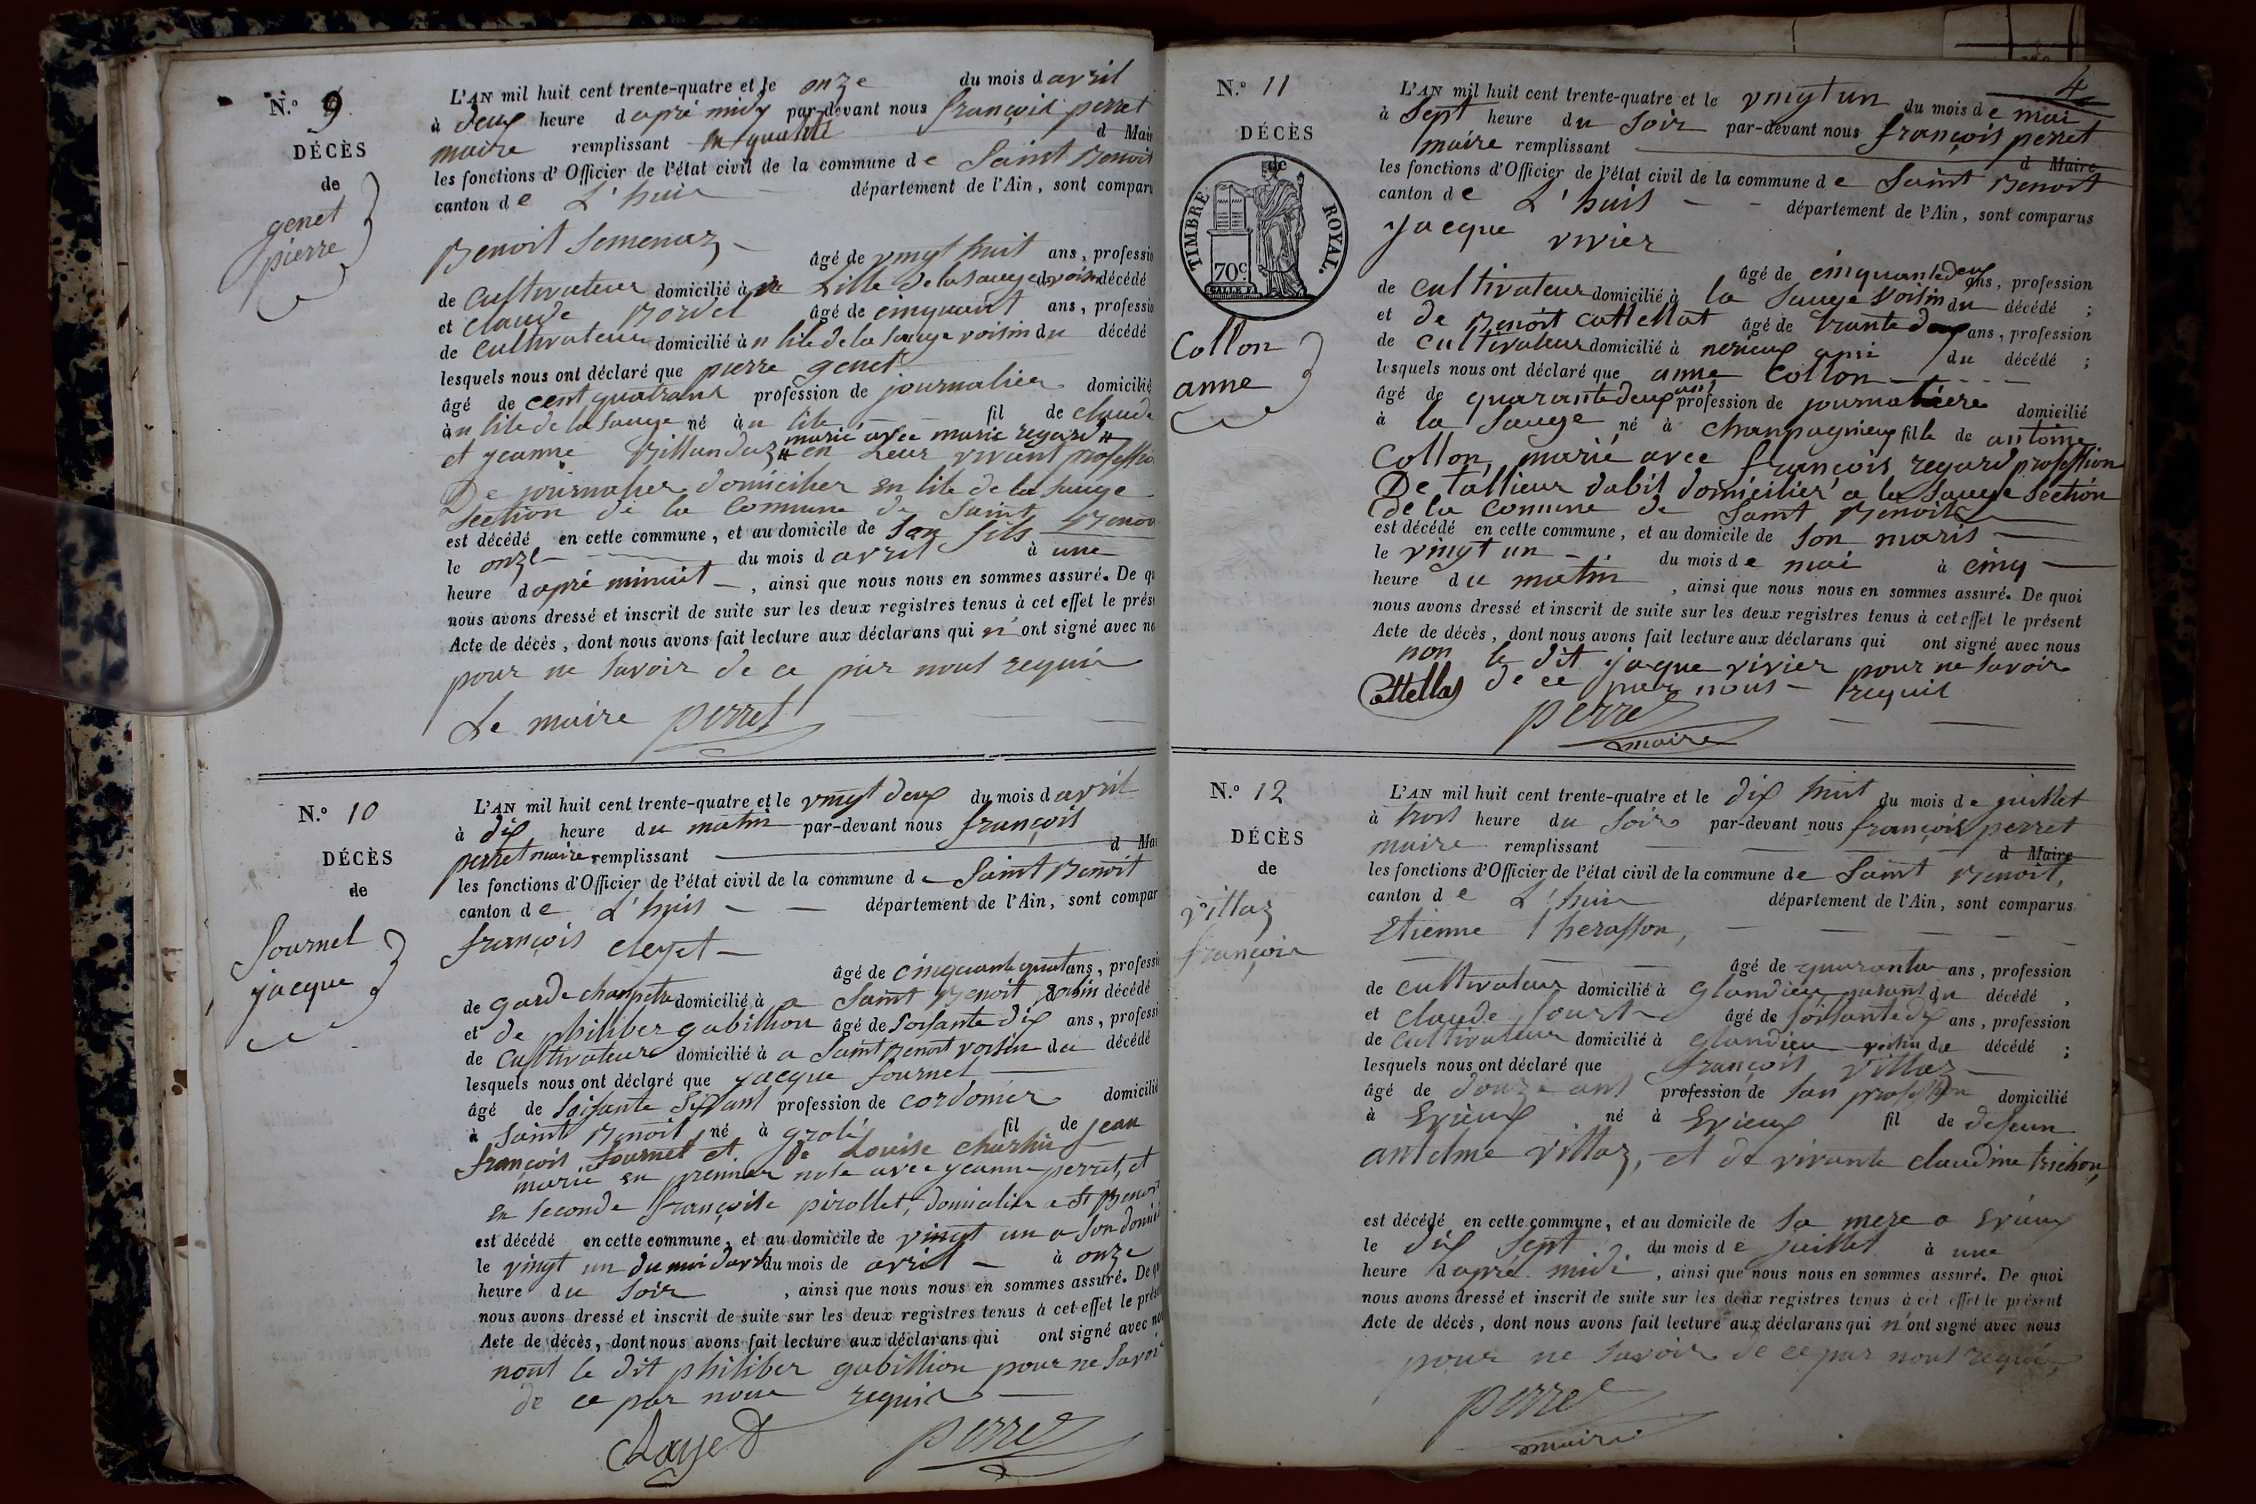 N.º 9
DÉCÈS
de
genet
pierre
L'AN mil huit cent trente-quatre et le onze du mois d avril
à deux heure d apré midy par-devant nous françois perret
maire remplissant d Mair
les fonctions d'Officier de l'état civil de la commune d e Saint Benoit
canton d e L'huis département de l'Ain, sont compar
Benoit Semenaz
âgé de vingt huit ans, professi
de Cultivateur domicilié à Lille de la Sauge voisin décédé
et Claude Bordel âgé de cinquant ans, professi
de Cultivateur domicilié à n lile de la Sauge voisin du décédé
lesquels nous ont déclaré que pierre genet
âgé de cent quatrans profession de journalier domicilié
à n lile de la Sauge né à n lile fil de claude
et jeanne Billandaz # en Leur vivant professi
marié avec marie regard #
De journalier domicilier en lile de la Sauge
Section de la Commune de Saint Benoi
est décédé en cette commune, et au domicile de Son fils
le onze du mois d avril à une
heure d apré minuit, ainsi que nous nous en sommes assuré. De qu
nous avons dressé et inscrit de suite sur les deux registres tenus à cet effet le prés
Acte de décès, dont nous avons fait lecture aux déclarans qui n'ont signé avec no
pour ne Savoir de ce par nous requis
Le maire perret
N.º 10
DÉCÈS
de
fournel
jacque
L'AN mil huit cent trente-quatre et le vingt deux du mois d avril
à dix heure du matin par-devant nous françois
perret maire remplissant d Mai
les fonctions d'Officier de l'état civil de la commune d e Saint Benoit
canton d e L'huis département de l'Ain, sont compar
françois cleyet
âgé de cinquante quat ans, professi
de garde champetre domicilié à a Saint Benoit voisin décédé
et de philiber gabillion âgé de Soisante dix ans, professi
de Cultivateur domicilié à a Saint Benoit voisin du décédé
lesquels nous ont déclaré que jacque fournel
âgé de Soisante dixans profession de cordonier domicilié
à Saint Benoit né à grolé fil de jean
françois fournel et de Louise
marié en premier nose avec jeanne perret, et
en Seconde françoise pirollet, domicilier a St Benoit
est décédé en cette commune, et au domicile de vingt un a Son domi
le vingt un du moi davri du mois de avril à onze
heure du Soir, ainsi que nous nous en sommes assuré. De qu
nous avons dressé et inscrit de suite sur les deux registres tenus à cet effet le prése
Acte de décès, dont nous avons fait lecture aux déclarans qui ont signé avec nou
nont le dit philiber gabillion pour ne Savoi
de ce par nous requis
Clayet perret
N.º 11
4
DÉCÈS
de
TIMBRE ROYAL.
70c.
Collon
anne
L'AN mil huit cent trente-quatre et le vingt un du mois d e mai
à Sept heure du Soir par-devant nous françois perret
maire remplissant d Maire
les fonctions d'Officier de l'état civil de la commune d e Saint Benoit
canton d e L'huis département de l'Ain, sont comparus
Jacque vivier
âgé de cinquante deux ans, profession
de cultivateur domicilié à la Sauge voisin du décédé ;
et de Benoit Cattellat âgé de trante deux ans, profession
de cultivateur domicilié à ami du décédé ;
lesquels nous ont déclaré que anne Collon
âgé de quarante deux ans profession de journaliere domicilié
à la Sauge né à Champagnieux fille de antoine
Collon, marié avec françois regard profession
De tallieur dabit domicilier a la Sauge Section
de la Comune de Saint Benoit
est décédé en cette commune, et au domicile de Son maris
le vingt un du mois d e mai à cinq
heure du matin, ainsi que nous nous en sommes assuré. De quoi
nous avons dressé et inscrit de suite sur les deux registres tenus à cet effet le présent
Acte de décès, dont nous avons fait lecture aux déclarans qui ont signé avec nous
non le dit jaque vivier pour ne Savoir
Cattellat de ce par nous requis
perret
maire
N.º 12
DÉCÈS
de
villaz
françois
L'AN mil huit cent trente-quatre et le dix huit du mois d e juillet
à trois heure du Soir par-devant nous françois perret
maire remplissant d Maire
les fonctions d'Officier de l'état civil de la commune d e Saint Benoit,
canton d e L'huis département de l'Ain, sont comparus
Etienne
âgé de quarante ans, profession
de cultivateur domicilié à Glandieu du décédé ,
et claude âgé de Soisante dix ans, profession
de Cultivateur domicilié à Glandieu voisin du décédé ;
lesquels nous ont déclaré que françois villaz
âgé de douze ans profession de San profession domicilié
à Evieux né à Evieux fil de defeun
antelme villaz, et de vivante claudine trichon,
est décédé en cette commune, et au domicile de Sa mere a Evieux
le dix Sept du mois d e juillet à une
heure d apré midi, ainsi que nous nous en sommes assuré. De quoi
nous avons dressé et inscrit de suite sur les deux registres tenus à cet effet le présent
Acte de décès, dont nous avons fait lecture aux déclarans qui n'ont signé avec nous
pour ne Savoir de ce par nous requis,
perret
maire